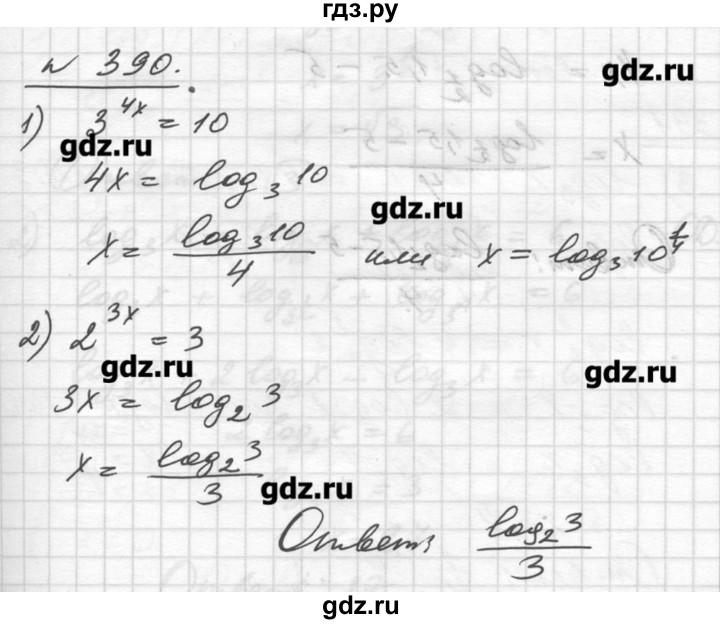 гдз.ру
№ 390.
gdz.ru
1) 3^{4x} = 10
gdz.ru
4x = log_3 10
gdz.ru
x = \frac{log_3 10}{4} или x = log_3 10^{\frac{1}{4}}
2) 2^{3x} = 3
gdz.ru
gdz.ru
3x = log_2 3
x = \frac{log_2 3}{3}
gdz.ru
Ответ: \frac{log_2 3}{3}
gdz.ru